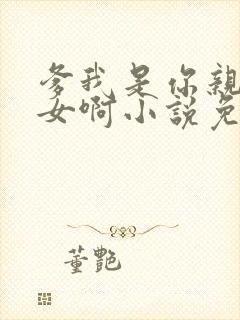 爹我是你親
女啊小說免
董艷